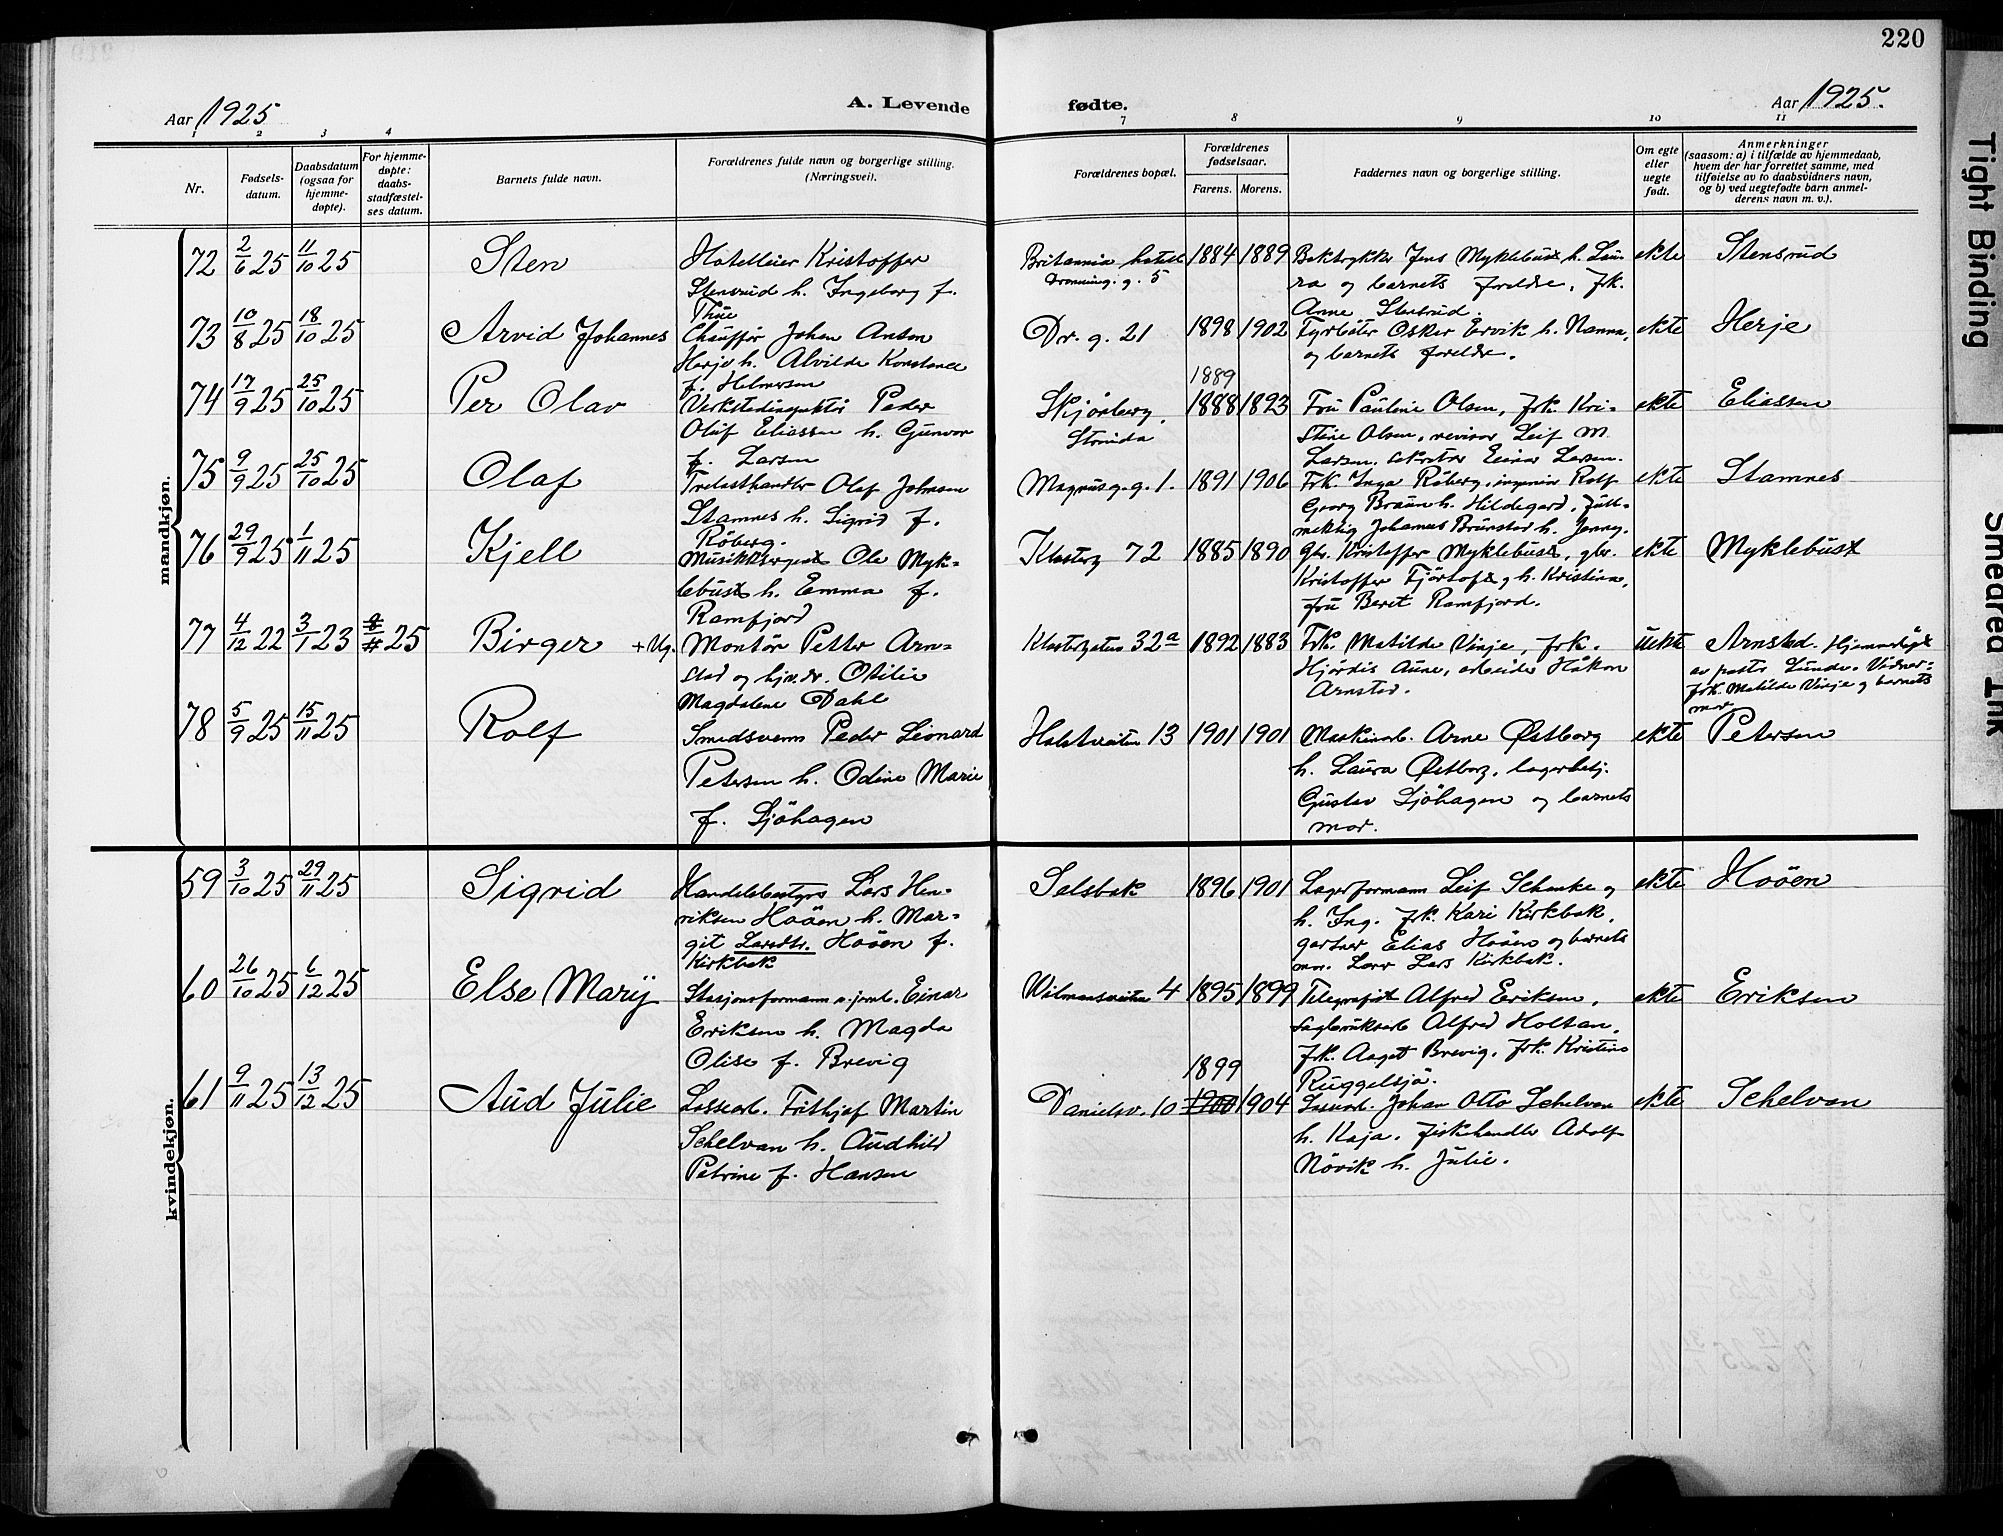 220
Aar 1925
A. Levende
fødte.
Aar 1925.
1 2 3 4 7 8 9 10 11
Nr.
Fødsels-
datum.
Daabsdatum
(ogsaa for
hjemme-
døpte).
For hjemme-
døpte:
daabs-
stadfæstel-
ses datum.
Barnets fulde navn.
Forældrenes fulde navn og borgerlige stilling.
(Næringsvei).
Forældrenes bopæl.
Forældrenes
fødselsaar.
Farens. Morens.
Faddernes navn og borgerlige stilling.
Om egte
eller
uegte
født.
Anmerkninger
(saasom: a) i tilfælde av hjemmedaab,
hvem der har forrettet samme, med
tilføielse av to daabsvidners navn,
og b) ved uegtefødte barn anmel-
derens navn m. v.).
mandkjøn.
72 2/6 25 11/10 25 Sten
Hotelleier Kristoffer
Stensrud h. Ingeborg f.
Thue
Britannia hotel
Dronning. g. 5
1884 1889
Boktrykker Jens Myklebust h. Lau-
ra og barnets foreldre, frk.
Anne Stensrud.
ekte Stensrud
73 10/8 25 18/10 25 Arvid Johannes
Chauffør Johan Anton
Herje h. Alvilde Konstance
f. Helmersen
Dr. g. 21
1898 1902
Fyrbøter Oskar Ervik h. Nanna,
og barnets foreldre.
ekte Herje
74 17/9 25 25/10 25 Per Olav
Verkstedinspektør Peder
Oluf Eliassen h. Gunvor
f. Larsen
Skjønberg,
Strinda
1889
1888 1893
Fru Pauline Olsen, frk. Kri-
stine Olsen, revisor Leif M.
Larsen, sekretær Einar Larsen.
ekte Eliassen
75 9/9 25 25/10 25 Olaf
Trelasthandler Olaf Johnsen
Stamnes h. Sigrid f.
Røberg.
Magnusg. g. 1.
1891 1906
Frk. Inga Røberg, ingeniør Rolf
Georg Braun h. Hildegard, full-
mektig Johannes Brunstad h. Jenny.
ekte Stamnes
76 29/9 25 1/11 25 Kjell
Musikksergeant Ole Myk-
lebust h. Emma f.
Ramfjord
Klosterg 72
1885 1890
Gbr. Kristoffer Myklebust, gbr.
Kristoffer Fjørtoft, h. Kristina,
fru Beret Ramfjord.
ekte Myklebust
77 4/12 22 3/1 23 8/11 25 Birger + Ug.
Montør Petter Arn-
stad og hjv. dr. Otilie
Magdalene Dahl
Klostergaten 32a
1892 1883
Frk. Matilde Vinje, frk.
Hjørdis Aune, arbeider Håkon
Arnstad.
uekte Arnstad. Hjemmedøpt
av pastor Lunde. Vidner:
frk. Matilde Vinje og barnets
mor
78 5/9 25 15/11 25 Rolf
Smedsvenn Peder Leonard
Petersen h. Odine Marie
f. Sjøhagen
Holstveiten 13
1901 1901
Maskinarb. Arne Østborg
h. Laura Østborg, lagerbetj.
Gustav Sjøhagen og barnets
mor.
ekte Petersen
kvindekjøn.
59 3/10 25 29/11 25 Sigrid
Handelsbestyrer Lars Hen-
riksen Hoøen h. Mar-
git Larsdtr. Hoøen f.
Kirkbak
Selsbak
1896 1901
Lagerformann Leif Schanke og
h. Ing. frk. Kari Kirkbak,
gartner Elias Hoøen og barnets
mor. Lærer Lars Kirkbak.
ekte Hoøen
60 26/10 25 6/12 25 Else Mary
Stasjonsformann v. jernb. Einar
Eriksen h. Magda
Olise f. Brevig
Wilmansveiten 4
1895 1899
Telegrafist Alfred Eriksen,
sagbruksarb Alfred Holtan,
frk. Aagot Brevig, frk. Kristine
Ruggelsjø.
ekte Eriksen
61 9/11 25 13/12 25 Aud Julie
Lossearb. Frithjof Martin
Schelvan h. Audhild
Petrine f. Hansen
Danielsv. 10
1899
1900 1904
Lossearb. Johan Otto Schelvan
h. Kaja. Fiskehandler Adolf
Nøvik h. Julie.
ekte Schelvan
Tight Binding
Smeared Ink